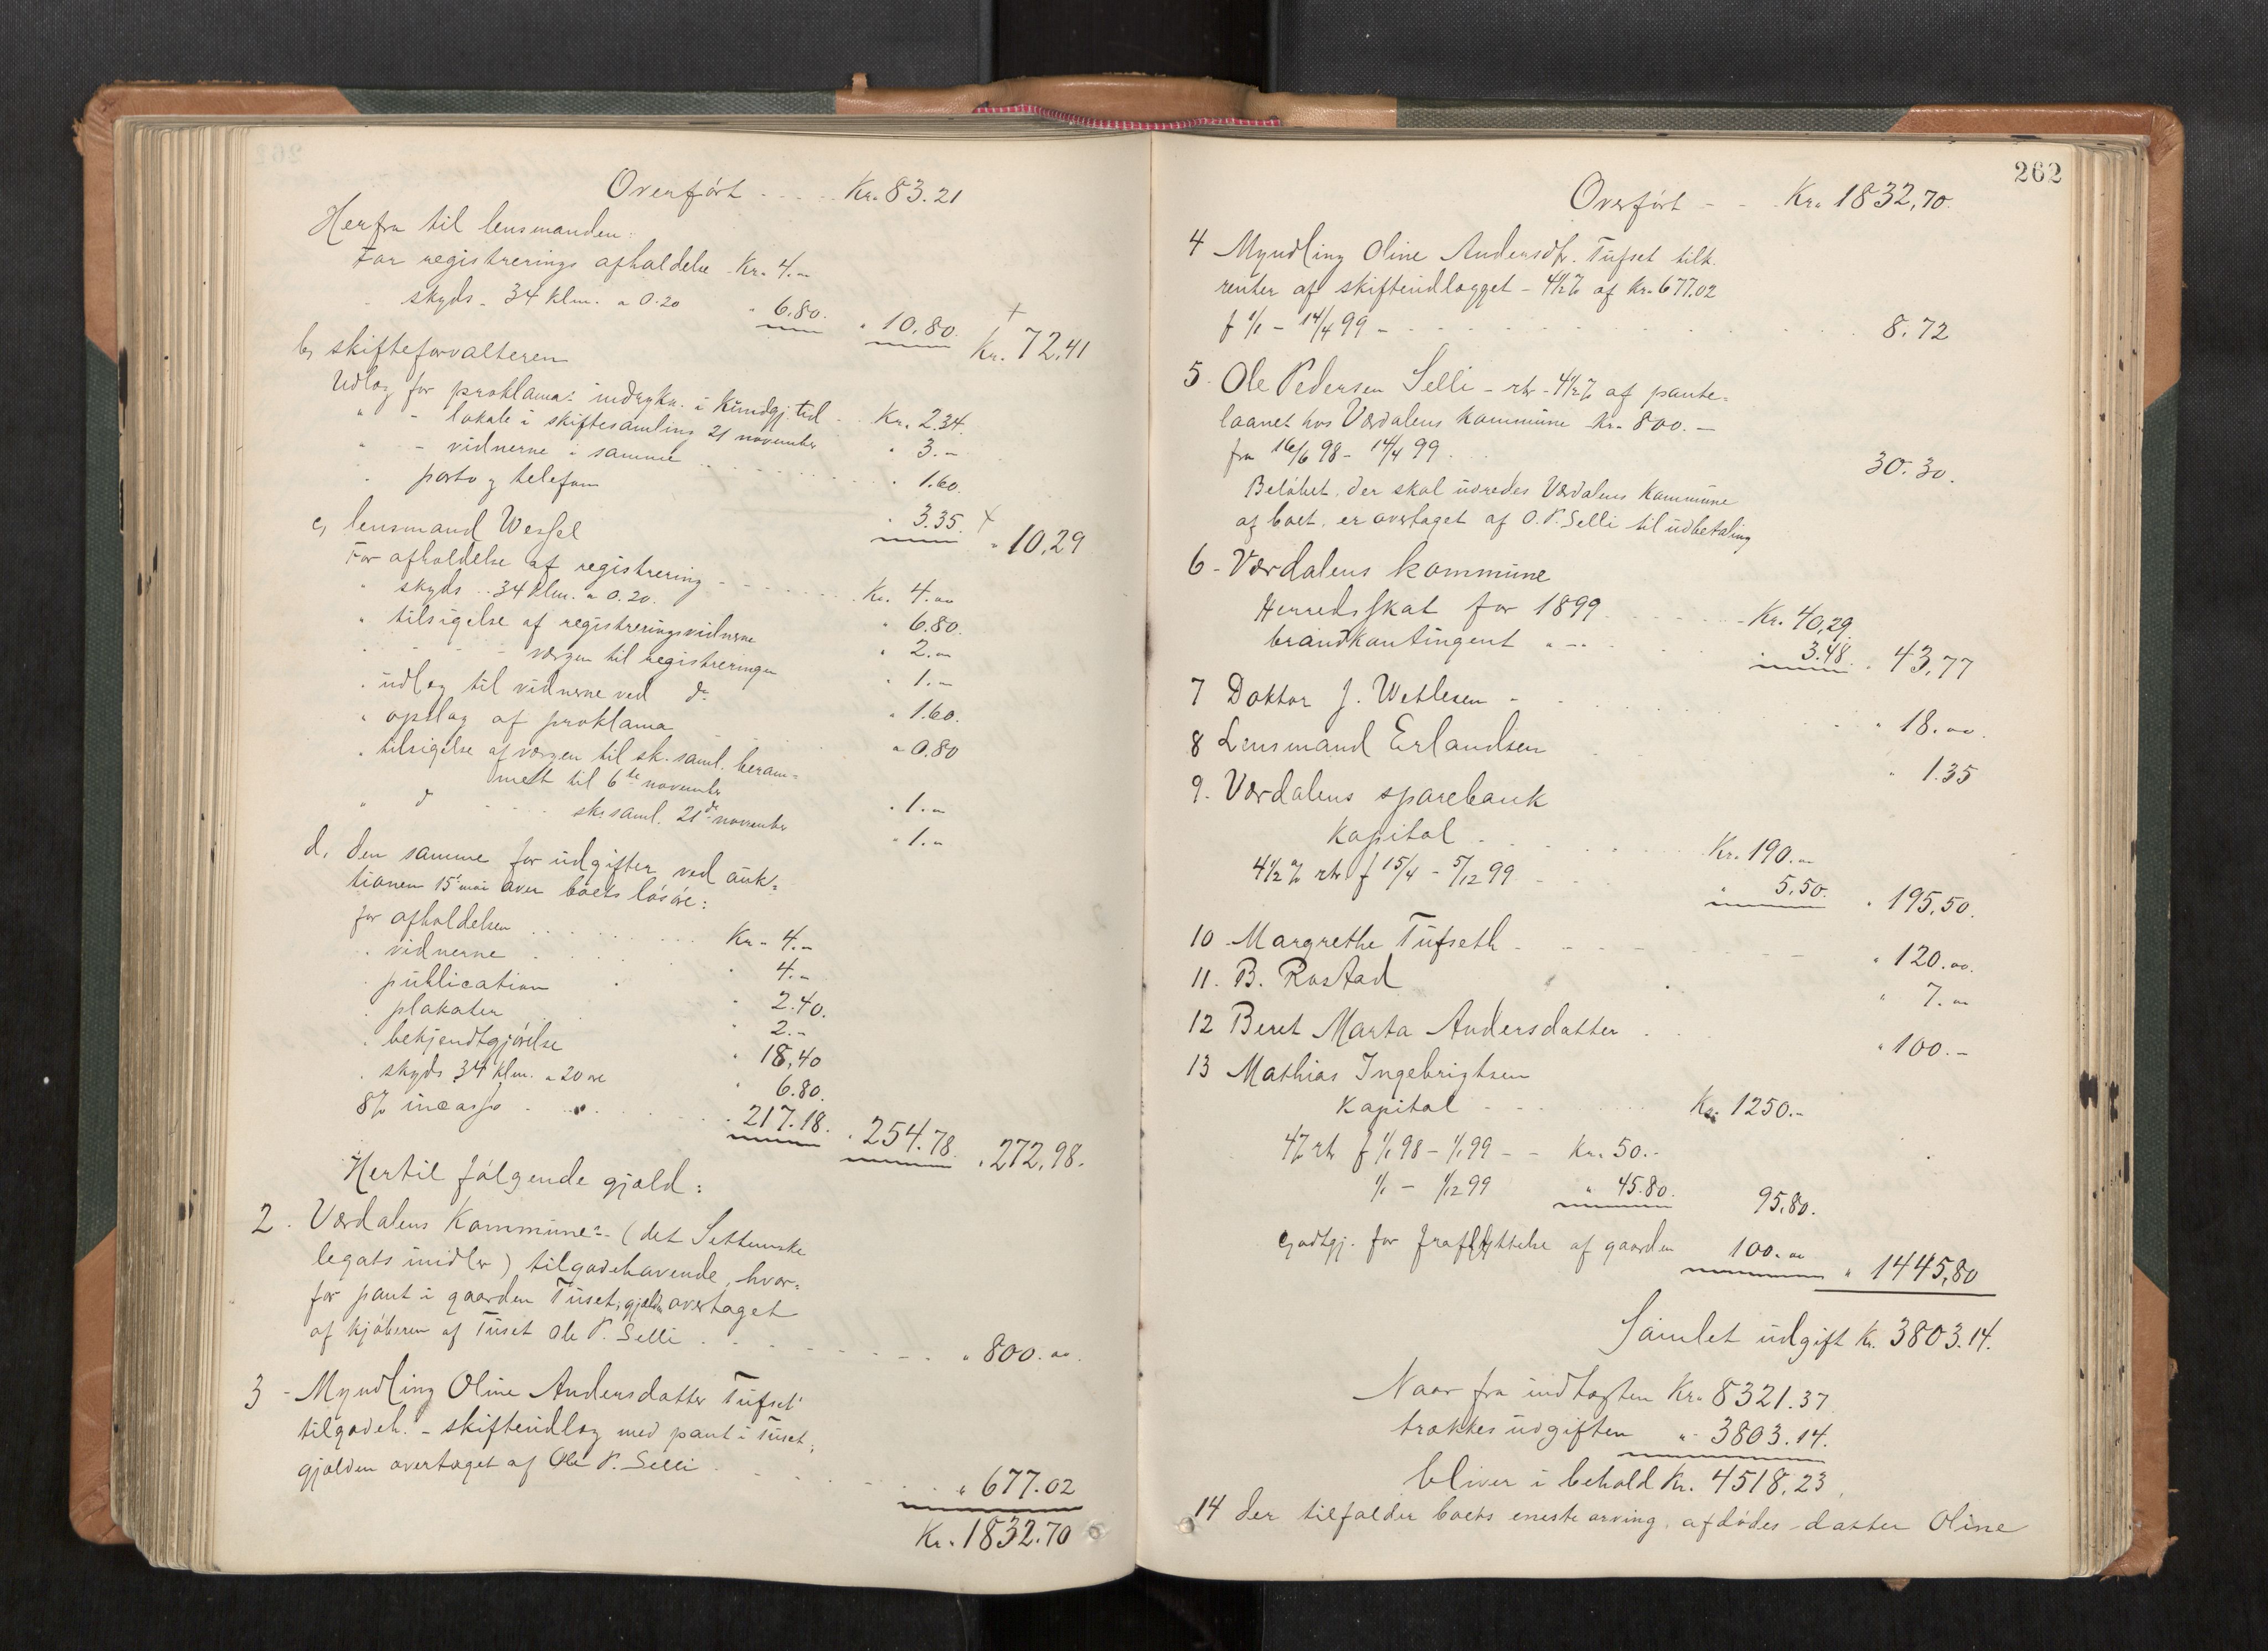 Overført - - - - Kr. 83.21
Herfra til lensmanden:
For registrerings afholdelse Kr. 4.-
" skyds - 34 klm. a 0.20 " 6.80. " 10,80. Kr. 72,41
b, skifteforvalteren
Udlæg for proklama: indrykn. i Kundgj. tid - Kr. 2.34.
" - lokale i skiftesamling 21 november " 3.-
" - vidnerne i samme " 1.60.
" porto og telefon " 3.35. " 10,29
c, lensmand Wessel
For afholdelse af registrering - - - Kr. 4.00
" skyds .. 34 klm. a 0.20. " 6.80.
" tilsigelse af registreringsvidnerne " 2.-
" - - - værgen til registreringen " 1.-
" udlæg til vidnerne ved do " 1.60.
" opslag af proklama " 0.80
" tilsigelse af værgen til sk. saml. beram=
met til 6te november " 1.-
" do - - - sk. saml. 21de november " 1.-
d, den samme for udgifter ved auk=
tionen 15' mai over boets løsøre:
for afholdelsen Kr. 4.-
" vidnerne " 4.-
" publication " 2.40.
" plakater " 2.-
" bekjendtgjørelse " 18,40
" skyds 34 klm. a 20 øre " 6.80.
8% incasso " 217.18. " 254.78. " 272,98.
Hertil følgende gjæld:
2. Værdalens Kommune: (det Settemske
legats midler) tilgodehavende, hvor=
for pant i gaarden Tuset; gjælden overtaget
af kjøberen af Tuset Ole P. Selli " 800.00.
3 - Myndling Oline Andersdatter Tufset
tilgodeh. - skifteudlæg med pant i Tuset,
gjælden overtaget af Ole P. Selli " 677.02
Kr. 1832.70
262
Overført - - Kr. 1832,70.
4 Myndling Oline Andersdtr. Tufset tilk.
renter af skifteudlægget - 4½% af Kr. 677.02
f 1/1 - 14/4 99 - 8.72
5. Ole Pedersen Selli - rtr - 4½% af pante=
laanet hos Værdalens kommune Kr. 800. -
fra 16/6 98 - 14/4 99. 30.30.
Beløbet, der skal udredes Værdalens Kommune
af boet, er overtaget af O. P. Selli til udbetaling
6 - Værdalens kommune
Herredsskat for 1899 Kr. 40,29.
brandkontingent " - " 3.48. " 43,77
7 Doktor J. Wetlesen - " 18.00.
8 Lensmand Erlandsen " 1.35
9. Værdalens sparebank
Kapital Kr. 190.00
4½% rtr f 15/4 - 5/12 99 " 5.50. " 195,50.
10 Margrethe Tufseth - " 120.00.
11. B. Rostad " 7.00
12 Beret Marta Andersdatter " 100.-
13 Mathias Ingebrigtsen
Kapital - - Kr. 1250.-
4% rtr f 1/1 98 - 1/1 99 - - Kr. 50.-
1/1 - 1/12 99 " 45.80. 95,80.
Godtgj. for fraflyttelse af gaarden 100.00 " 1445,80
Samlet udgift Kr. 3803.14.
Naar fra indtægten Kr. 8321.37
trækkes udgiften " 3803.14.
bliver i behold Kr. 4518,23,
14 der tilfalder boets eneste arving, afdødes datter Oline